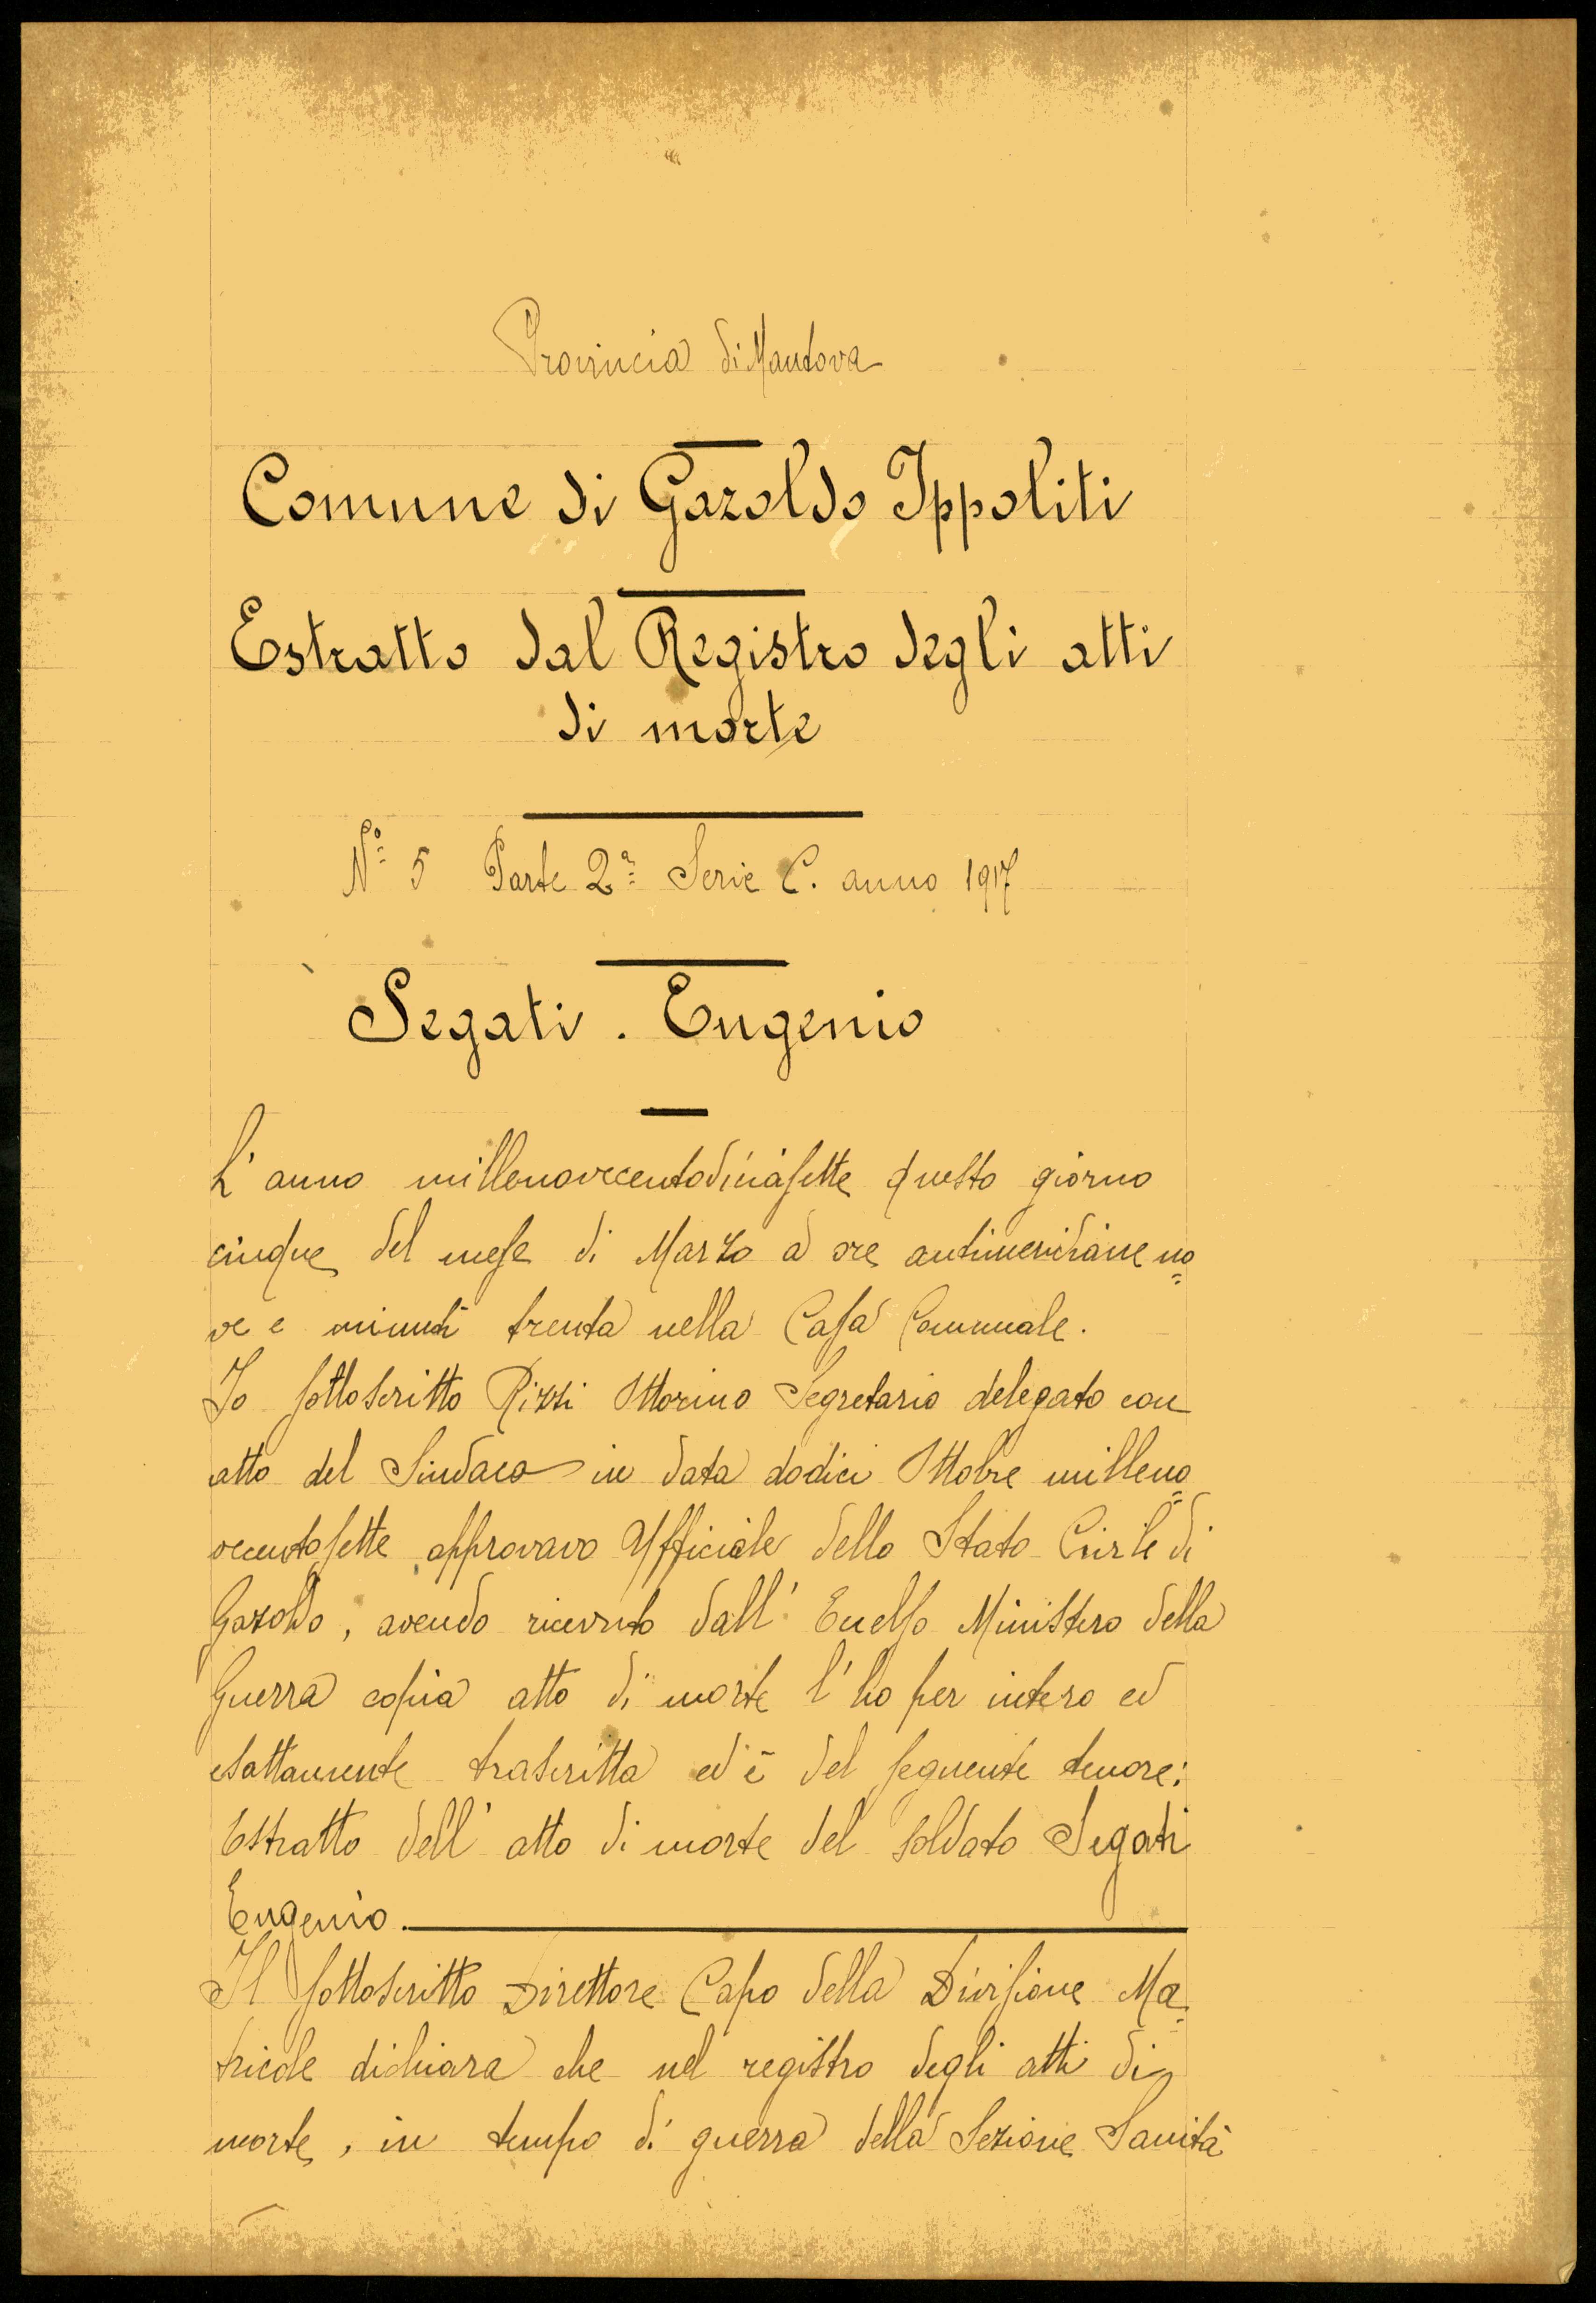 Provincia di Mantova
Comune di Gazoldo Ippoliti
Estratto dal Registro degli atti
di morte
Nº 5 Parte 2ª Serie C. anno 1917
Segati . Eugenio
L'anno millenovecentodiciasette questo giorno
cinque del mese di Marzo a ore antimeridiane no=
ve e minuti trenta nella Casa Comunale.
Io sottoscritto Rizzi Ottorino Segretario delegato con
atto del Sindaco in data dodici Ottobre milleno=
vecentosette approvavo Ufficiale dello Stato Civile di
Gazoldo, avendo ricevuto dall' Eccelso Ministero della
Guerra copia atto di morte l'ho per intero ed
esattamente trascritta ed è del seguente tenore:
Estratto dell' atto di morte del soldato Segati
Eugenio.
Il sottoscritto Direttore Capo della Divisione Ma=
tricole dichiara che nel registro degli atti di
morte, in tempo di guerra della Sezione Sanità